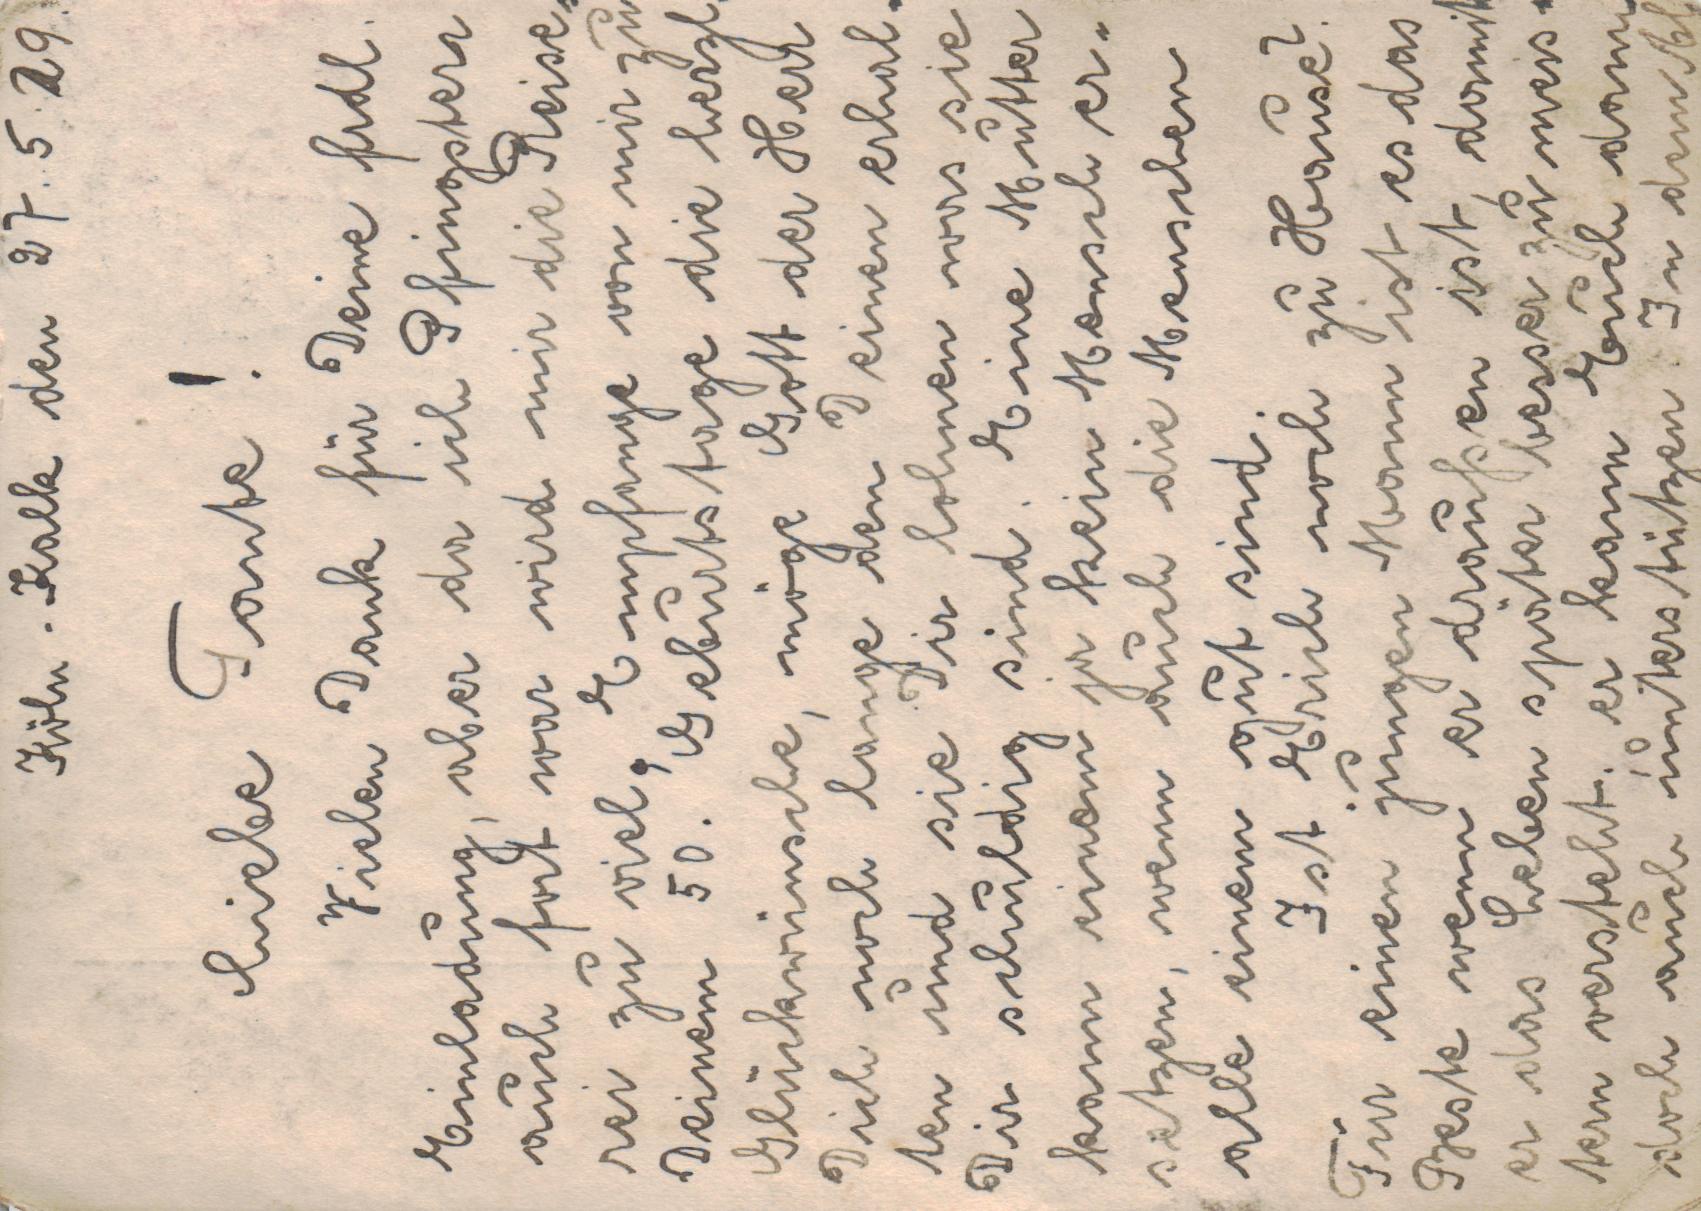 Köln-Kalk den 27.5.29.
Liebe Tante!
Vielen Dank für Deine frdl.
Einladung, aber da ich Pfingsten
auch fort war wird mir die Reise-
rei zu viel, Empfange von mir zu
Deinem 50. Geburtstage die herzl.
Glückwünsche, möge Gott der Herr
Dich noch lange den Deinen erhal-
ten und sie Dir lohnen was sie
Dir schuldig sind. Eine Mutter
kann einem ja kein Mensch er-
setzen, wenn auch die Menschen
alle einem gut sind.
Ist Erich noch zu Hause?
Für einen jungen Mann ist es das
Beste wenn er draußen ist, damit
er das Leben später besser zu meis-
tern versteht. er kann Euch dann
doch auch unterstützen. In dem